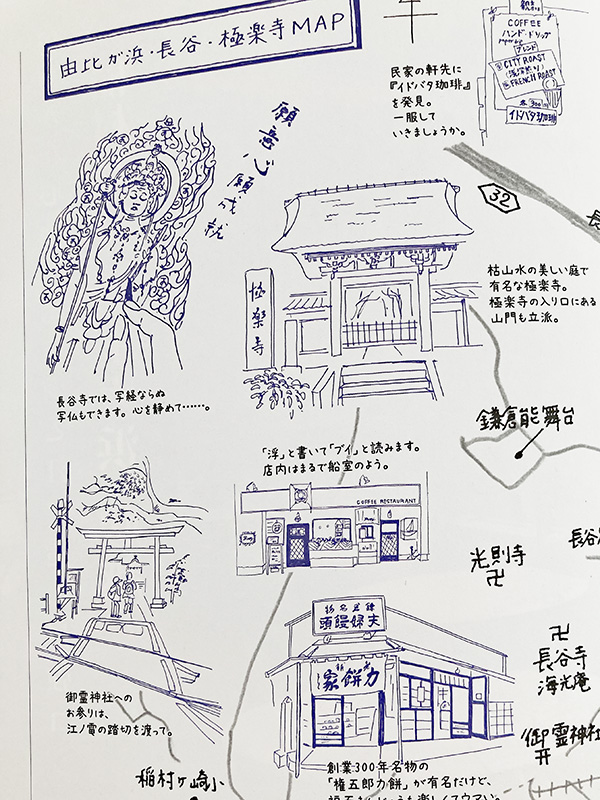 由比が浜・長谷・極楽寺MAP
COFFEE
ハンド・ドリップ
ブレンド
CITY ROAST
FRENCH ROAST
イドバタ珈琲
民家の軒先に
『イドバタ珈琲』
を発見。
一服して
いきましょうか。
願意 心願成就
32
長
極楽寺
枯山水の美しい庭で
有名な極楽寺。
極楽寺の入り口にある
山門も立派。
長谷寺では、写経ならぬ
写仏もできます。心を静めて……。
鎌倉能舞台
「浮」と書いて「ブイ」と読みます。
店内はまるで船室のよう。
COFFEE RESTAURANT
光則寺
卍
長谷
卍
長谷寺
海光庵
御霊神社
御霊神社への
お参りは、
江ノ電の踏切を渡って。
夫婦饅頭
力餅家
稲村ヶ崎小
創業300年名物の
「権五郎力餅」が有名だけど、